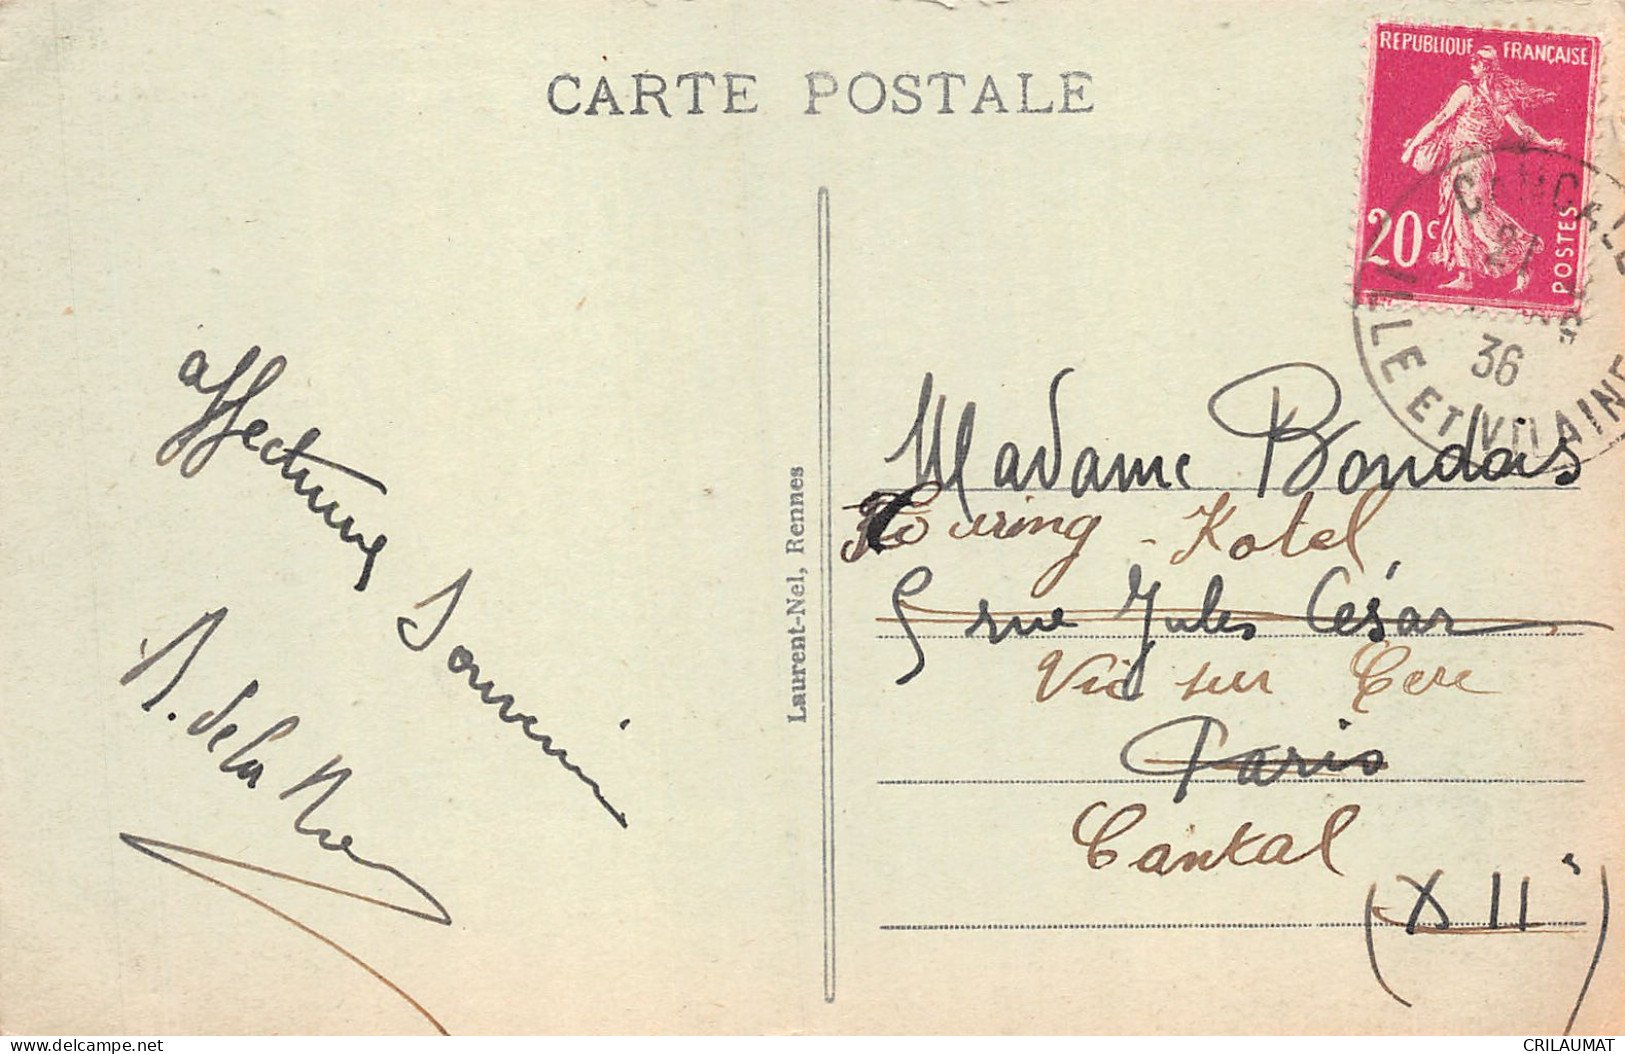 CARTE POSTALE
REPUBLIQUE FRANÇAISE
20c
POSTES
CANCALE
21
36
ILLE ET VILAINE
affectueux Souvenir
Laurent-Nel, Rennes
Madame Bondais
Touring - Hotel
5 rue Jules César
Vic sur Cere
Paris
Cantal
(XIIe)
delcampe.net
CRILAUMAT